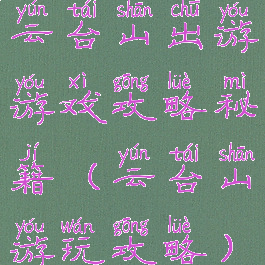 yún tái shān chū yóu
云台山出游
yóu xì gōng lüè mì
游戏攻略秘
jí yún tái shān
籍（云台山
yóu wán gōng lüè
游玩攻略）